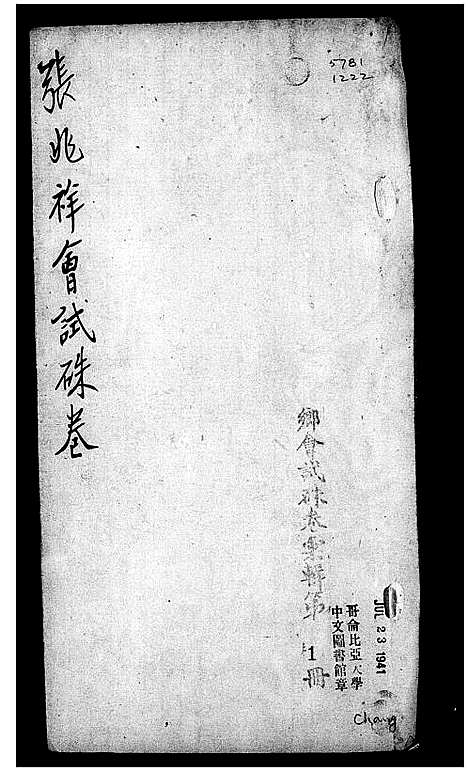 張兆祥會試硃卷
5781
1222
鄉會試硃卷彙輯第1冊
哥倫比亞大學
中文圖書館章
JUL 23 1941
Chang